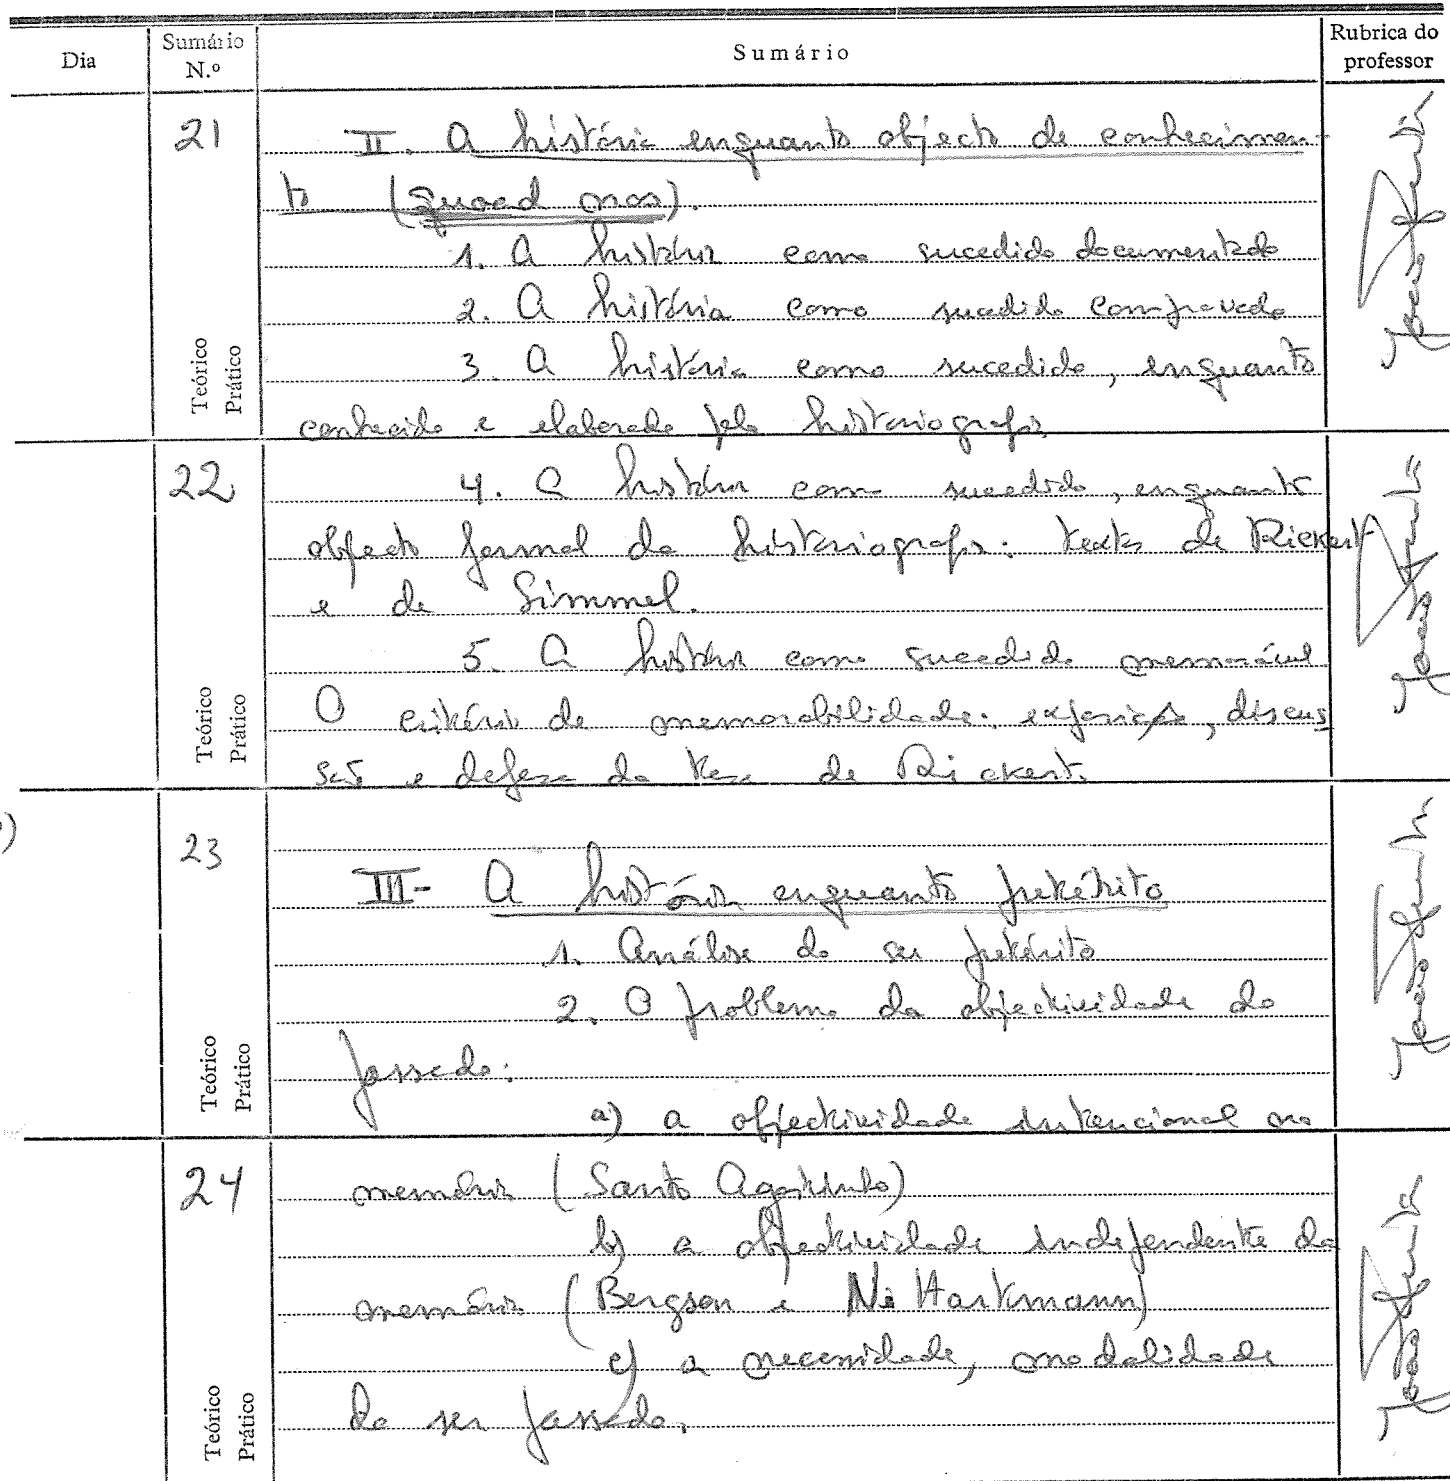 Dia
Sumário N.º
Sumário
Rubrica do professor
21
II. A história enquanto objecto de conhecimen-
to (quoad nos).
1. A história como sucedido documentado
2. A história como sucedido comprovado
3. A história como sucedido, enquanto
conhecido e elaborado pela historiografia
Teórico
Prático
22
4. A história como sucedido, enquanto
objecto formal da historiografia: textos de Rickert
e de Simmel.
5. A história como sucedido memorável
O critério de memorabilidade: exposição, discus
são e defesa da tese de Rickert.
Teórico
Prático
23
III- A história enquanto pretérito
1. Análise do ser pretérito
2. O problema da objectividade do
passado:
a) a objectividade intencional na
Teórico
Prático
24
memória (Santo Agostinho)
b) a objectividade independente da
memória (Bergson e Hartmann)
c) a necessidade, modalidade
do ser passado.
Teórico
Prático